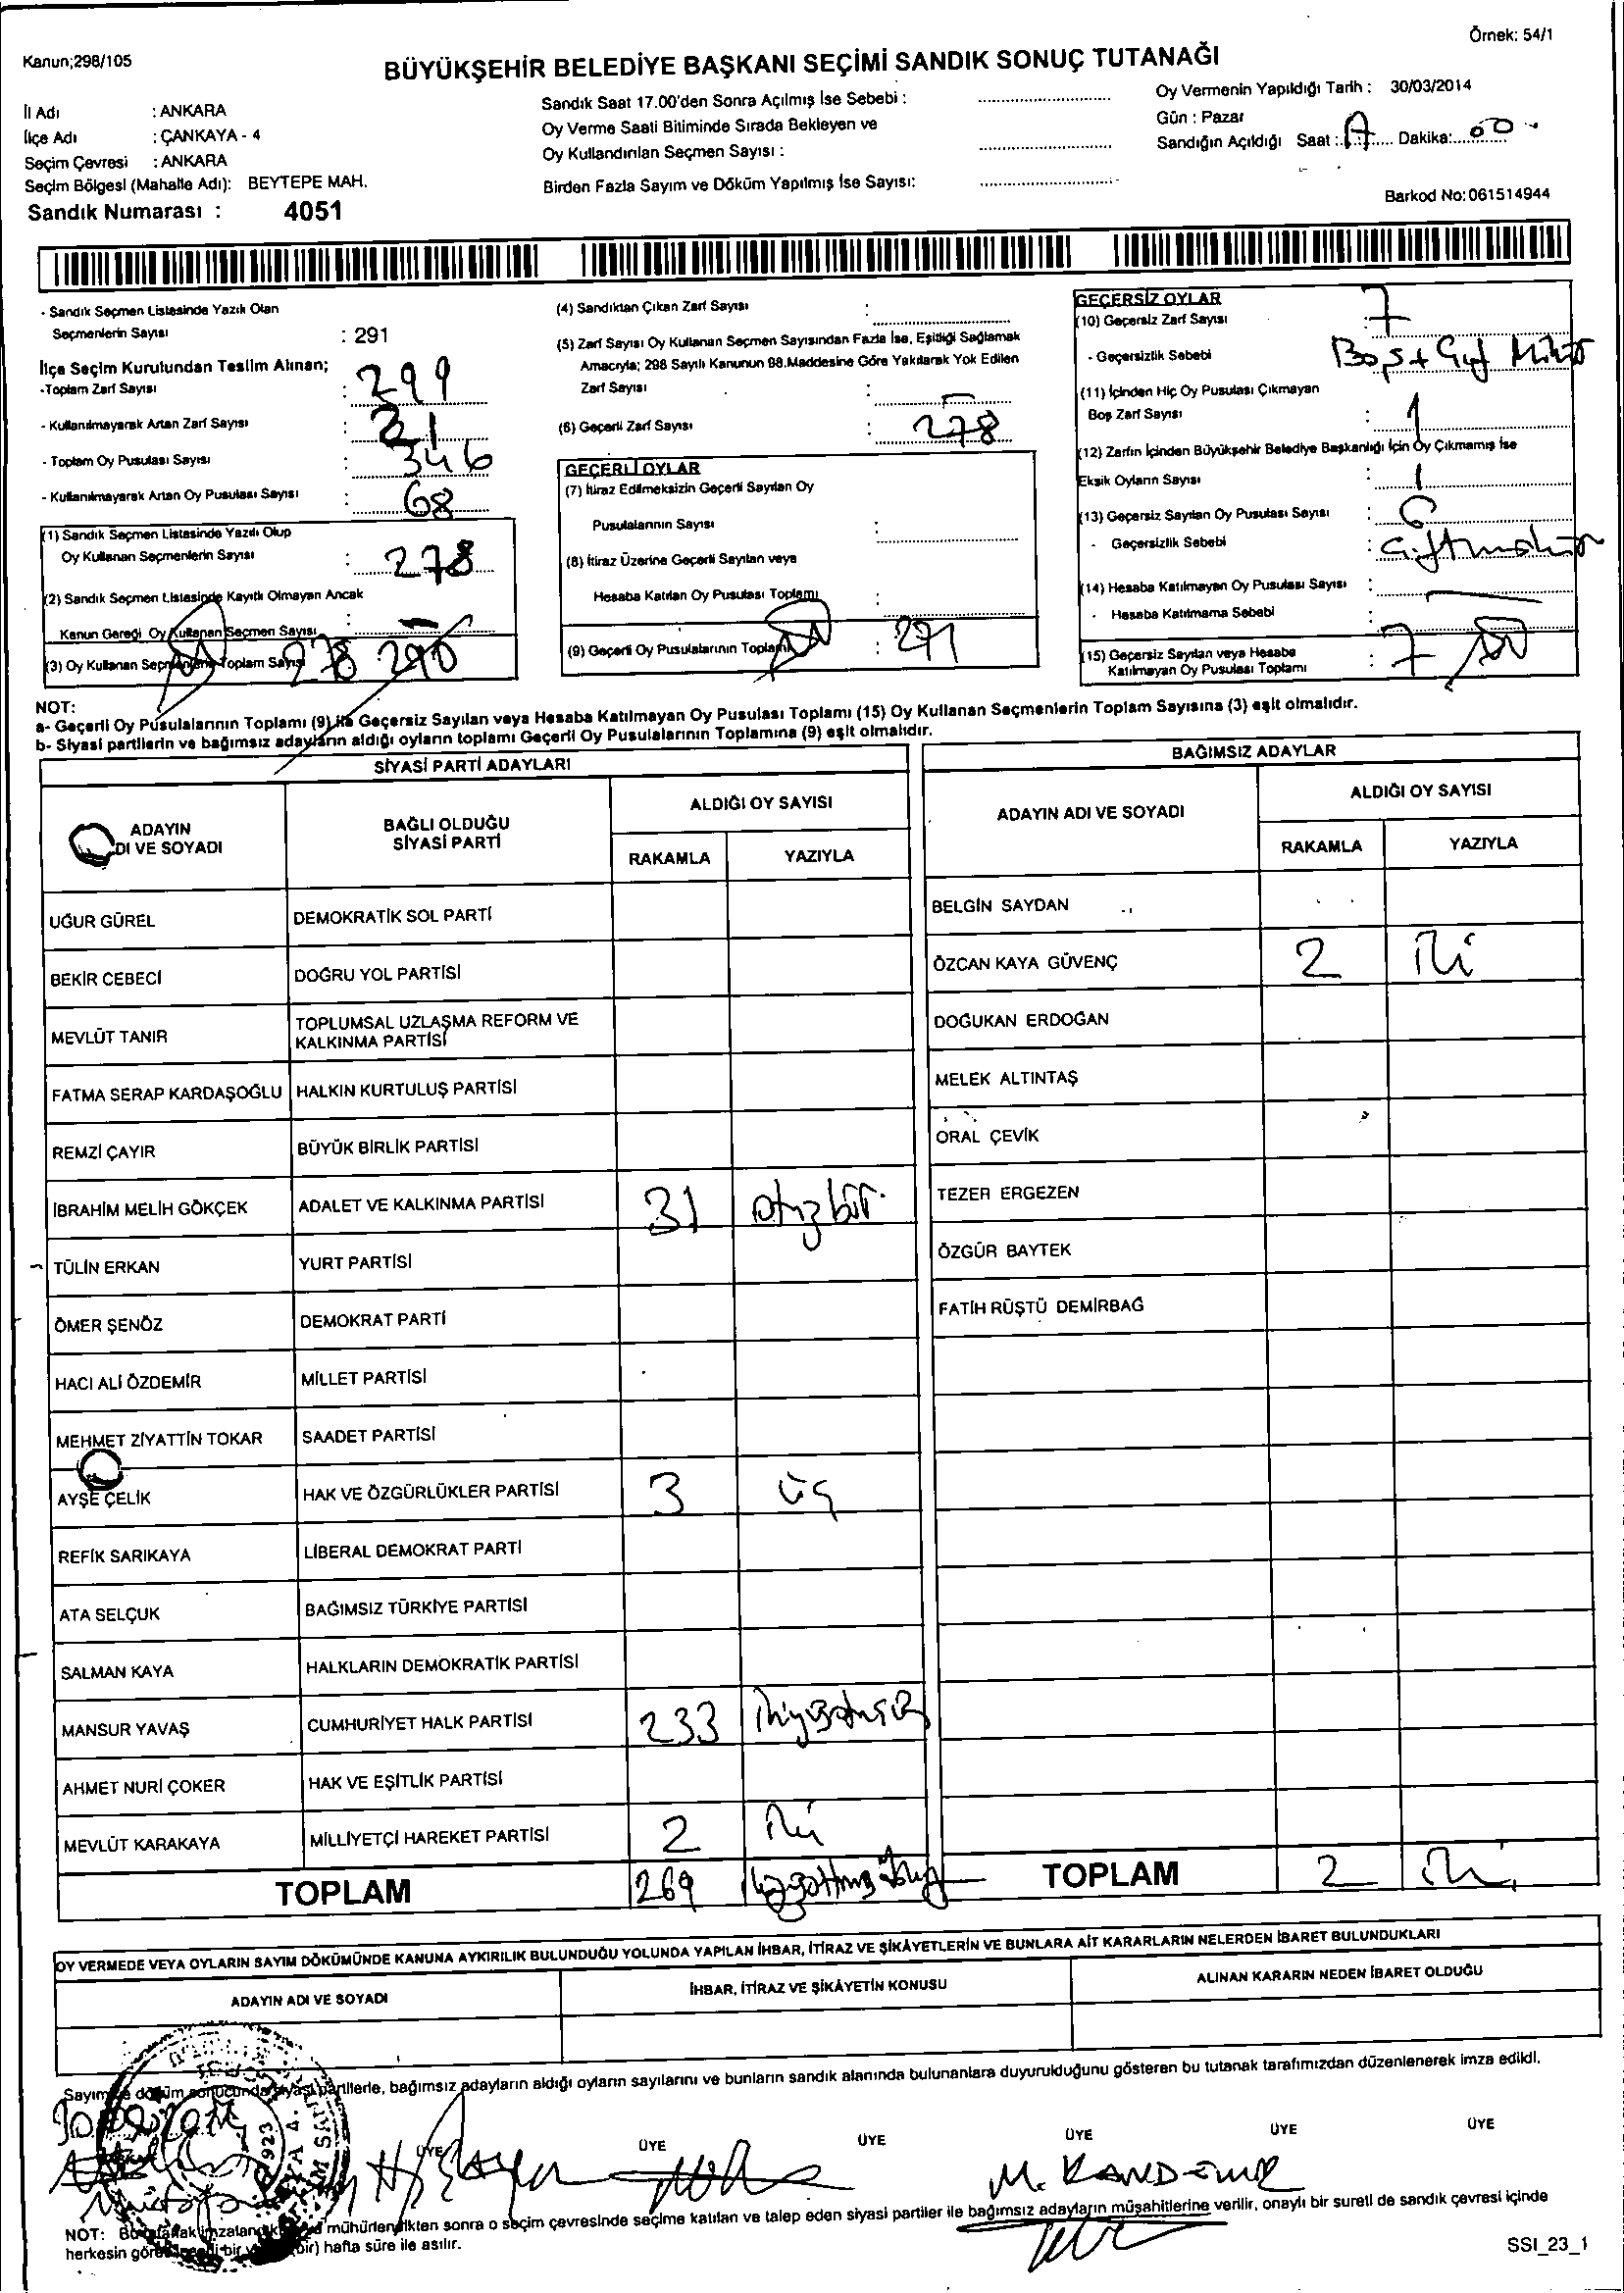 Örnek: 54/1
Kanun;298/105
BÜYÜKŞEHİR BELEDİYE BAŞKANI SEÇİMİ SANDIK SONUÇ TUTANAĞI
İl Adı : ANKARA
İlçe Adı : ÇANKAYA - 4
Seçim Çevresi : ANKARA
Seçim Bölgesi (Mahalle Adı): BEYTEPE MAH.
Sandık Numarası : 4051
Sandık Saat 17.00'den Sonra Açılmış İse Sebebi :
Oy Verme Saati Bitiminde Sırada Bekleyen ve
Oy Kullandırılan Seçmen Sayısı :
Birden Fazla Sayım ve Döküm Yapılmış İse Sayısı:
Oy Vermenin Yapıldığı Tarih : 30/03/2014
Gün : Pazar
Sandığın Açıldığı Saat : Dakika: 00
Barkod No: 061514944
- Sandık Seçmen Listesinde Yazılı Olan
Seçmenlerin Sayısı : 291
İlçe Seçim Kurulundan Teslim Alınan;
-Toplam Zarf Sayısı : 299
- Kullanılmayarak Artan Zarf Sayısı : 21
- Toplam Oy Pusulası Sayısı : 346
- Kullanılmayarak Artan Oy Pusulası Sayısı : 68
(1) Sandık Seçmen Listesinde Yazılı Olup
Oy Kullanan Seçmenlerin Sayısı : 278
(2) Sandık Seçmen Listesinde Kayıtlı Olmayan Ancak
Kanun Gereği Oy Kullanan Seçmen Sayısı : -
(3) Oy Kullanan Seçmenlerin Toplam Sayısı 278 290
(4) Sandıktan Çıkan Zarf Sayısı :
(5) Zarf Sayısı Oy Kullanan Seçmen Sayısından Fazla İse, Eşitliği Sağlamak
Amacıyla; 298 Sayılı Kanunun 98.Maddesine Göre Yakılarak Yok Edilen
Zarf Sayısı : -
(6) Geçerli Zarf Sayısı : 278
GEÇERLİ OYLAR
(7) İtiraz Edilmeksizin Geçerli Sayılan Oy
Pusulalarının Sayısı :
(8) İtiraz Üzerine Geçerli Sayılan veya
Hesaba Katılan Oy Pusulası Toplamı :
(9) Geçerli Oy Pusulalarının Toplamı : 271
GEÇERSİZ OYLAR
(10) Geçersiz Zarf Sayısı : 7
- Geçersizlik Sebebi Boş+ Çift Mühür
(11) İçinden Hiç Oy Pusulası Çıkmayan
Boş Zarf Sayısı : 1
(12) Zarfın İçinden Büyükşehir Belediye Başkanlığı İçin Oy Çıkmamış İse
Eksik Oyların Sayısı : 1
(13) Geçersiz Sayılan Oy Pusulası Sayısı : 6
- Geçersizlik Sebebi : Çift mühür
(14) Hesaba Katılmayan Oy Pusulası Sayısı : -
- Hesaba Katılmama Sebebi :
(15) Geçersiz Sayılan veya Hesaba
Katılmayan Oy Pusulası Toplamı : 7
NOT:
a- Geçerli Oy Pusulalarının Toplamı (9) ile Geçersiz Sayılan veya Hesaba Katılmayan Oy Pusulası Toplamı (15) Oy Kullanan Seçmenlerin Toplam Sayısına (3) eşit olmalıdır.
b- Siyasi partilerin ve bağımsız adayların aldığı oyların toplamı Geçerli Oy Pusulalarının Toplamına (9) eşit olmalıdır.
SİYASİ PARTİ ADAYLARI
ADAYIN
DI VE SOYADI
BAĞLI OLDUĞU
SİYASİ PARTİ
ALDIĞI OY SAYISI
RAKAMLA YAZIYLA
UĞUR GÜREL DEMOKRATİK SOL PARTİ
BEKİR CEBECİ DOĞRU YOL PARTİSİ
MEVLÜT TANIR TOPLUMSAL UZLAŞMA REFORM VE
KALKINMA PARTİSİ
FATMA SERAP KARDAŞOĞLU HALKIN KURTULUŞ PARTİSİ
REMZİ ÇAYIR BÜYÜK BİRLİK PARTİSİ
İBRAHİM MELİH GÖKÇEK ADALET VE KALKINMA PARTİSİ 31 otuzbir
TÜLİN ERKAN YURT PARTİSİ
ÖMER ŞENÖZ DEMOKRAT PARTİ
HACI ALİ ÖZDEMİR MİLLET PARTİSİ
MEHMET ZİYATTİN TOKAR SAADET PARTİSİ
AYŞE ÇELİK HAK VE ÖZGÜRLÜKLER PARTİSİ 3 üç
REFİK SARIKAYA LİBERAL DEMOKRAT PARTİ
ATA SELÇUK BAĞIMSIZ TÜRKİYE PARTİSİ
SALMAN KAYA HALKLARIN DEMOKRATİK PARTİSİ
MANSUR YAVAŞ CUMHURİYET HALK PARTİSİ 233 ikiyüzotuzüç
AHMET NURİ ÇOKER HAK VE EŞİTLİK PARTİSİ
MEVLÜT KARAKAYA MİLLİYETÇİ HAREKET PARTİSİ 2 iki
TOPLAM 269
BAĞIMSIZ ADAYLAR
ADAYIN ADI VE SOYADI
ALDIĞI OY SAYISI
RAKAMLA YAZIYLA
BELGİN SAYDAN
ÖZCAN KAYA GÜVENÇ 2 iki
DOĞUKAN ERDOĞAN
MELEK ALTINTAŞ
ORAL ÇEVİK
TEZER ERGEZEN
ÖZGÜR BAYTEK
FATİH RÜŞTÜ DEMİRBAĞ
TOPLAM 2 iki
OY VERMEDE VEYA OYLARIN SAYIM DÖKÜMÜNDE KANUNA AYKIRILIK BULUNDUĞU YOLUNDA YAPILAN İHBAR, İTİRAZ VE ŞİKÂYETLERİN VE BUNLARA AİT KARARLARIN NELERDEN İBARET BULUNDUKLARI
ADAYIN ADI VE SOYADI İHBAR, İTİRAZ VE ŞİKÂYETİN KONUSU ALINAN KARARIN NEDEN İBARET OLDUĞU
Sayım ve döküm sonucunda siyasi partilerle, bağımsız adayların aldığı oyların sayılarını ve bunların sandık alanında bulunanlara duyurulduğunu gösteren bu tutanak tarafımızdan düzenlenerek imza edildi.
ÜYE ÜYE ÜYE ÜYE ÜYE ÜYE
M. KANDEMİR
NOT: Bu mühürlendikten sonra o seçim çevresinde seçime katılan ve talep eden siyasi partiler ile bağımsız adayların müşahitlerine verilir, onaylı bir sureti de sandık çevresi içinde
herkesin bir) hafta süre ile asılır.
SSI_23_1